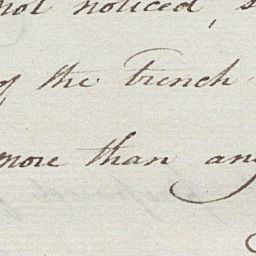 not noticed,
of the trench
more than any